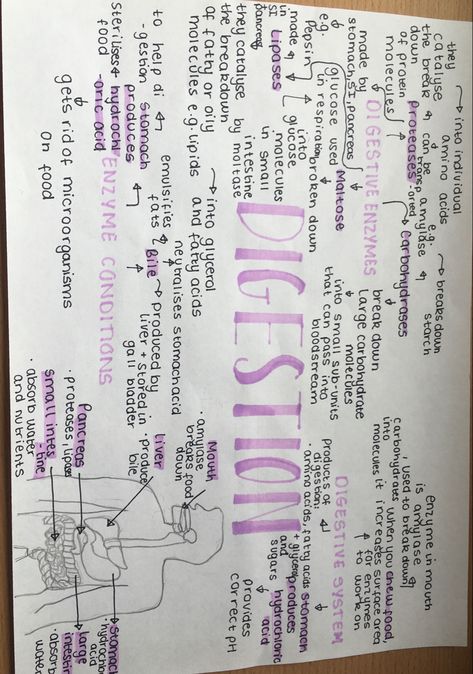 DIGESTION
DIGESTIVE ENZYMES
made by
stomach, SI, pancreas
proteases
they
catalyse
the break
down
of protein
molecules
into individual
amino acids
can be
transported
carbohydrases
e.g.
amylase
breaks down
starch
break down
large carbohydrate
molecules
into small sub-units
that can pass into
bloodstream
e.g.
pepsin
Maltose
broken down
into
glucose
molecules
in small
intestine
by maltase
glucose used
in respiration
Lipases
made
in
SI
pancreas
they catalyse
the breakdown
of fatty or oily
molecules e.g. lipids
into glyceral
and fatty acids
ENZYME CONDITIONS
Bile
produced by
liver + stored in
gall bladder
neutralises stomach acid
emulsifies
fats
stomach
produces
hydrochl
-oric acid
to help di
-gestion
sterilises
food
gets rid of microorganisms
on food
DIGESTIVE SYSTEM
enzyme in mouth
is amylase
, used to breakdown
carbohydrates
into
when you chew food,
it increases surface area
for enzymes
to work on
molecules
Products of
digestion:
· amino acids, fatty acids
+ glycerol
and
sugars
stomach
produces
hydrochloric
acid
provides
correct pH
Mouth
· amylase
breaks food
down
liver
· produce
bile
Pancreas
· proteases, lipases
small intes
-tine
· absorb water
and nutrients
stomach
· hydrochloric
acid
large
intestine
· absorb
water